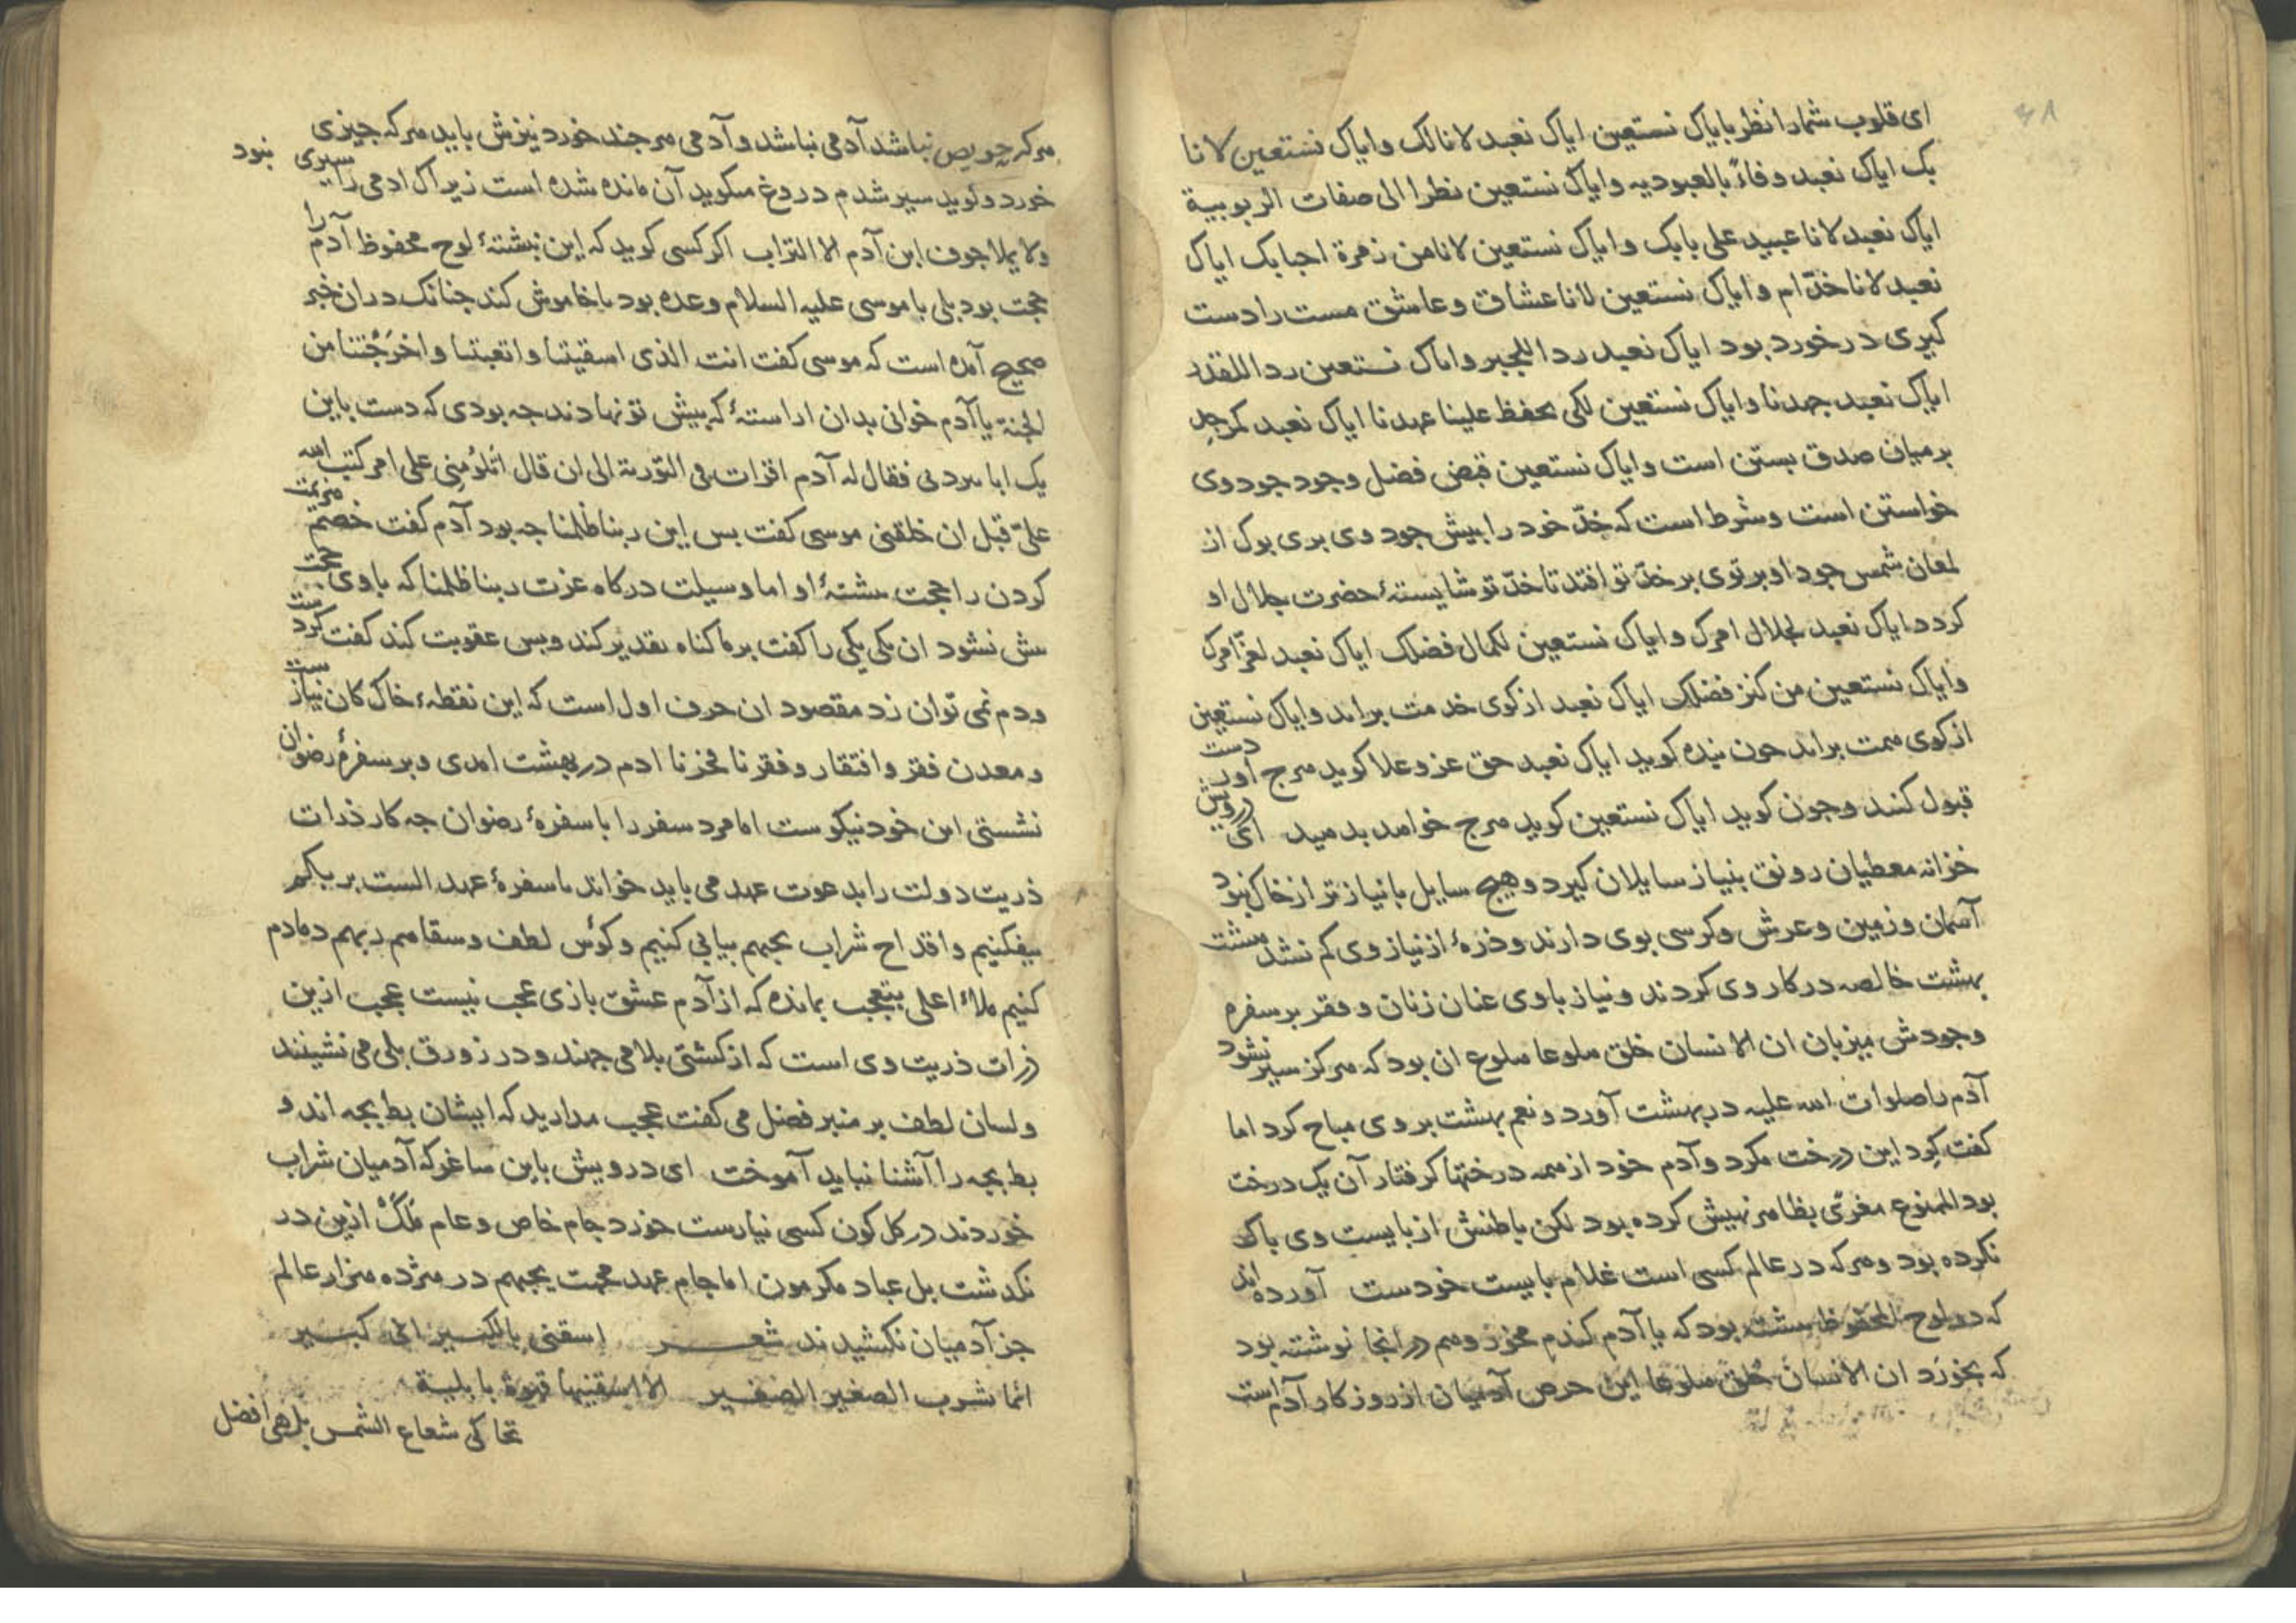 ای قلوب شمارا نظر بایاک نستعین ایاک نعبد لانا لک وایاک نستعین لانا
بک ایاک نعبد وفاءً بالعبودیه وایاک نستعین نظرا الی صفات الربوبیة
ایاک نعبد لانا عبید علی بابک وایاک نستعین لانا من زمرة احبابک ایاک
نعبد لانا خدّام وایاک نستعین لانا عشاق وعاشق مست را دست
کیری در خورد بود ایاک نعبد ردا للجبر وایاک نستعین ردا للقدر
ایاک نعبد جهدنا وایاک نستعین لکی یحفظ علینا عهدنا ایاک نعبد کمر جد
بر میان صدق بستن است وایاک نستعین قبض فضل وجود جود وی
خواستن است وشرط است که خدّ خود را بیش جود وی بری بوک از
لمعان شمس جود او برتوی بر خدّ تو افتد تا خدّ تو شایستهٔ حضرت جلال او
کردد ایاک نعبد لجلال امرک وایاک نستعین لکمال فضلک ایاک نعبد لعزّ امرک
وایاک نستعین من کنز فضلک ایاک نعبد از کوی خدمت براند وایاک نستعین
از کوی همت براند جون بنده کوید ایاک نعبد حق عز وعلا کوید هرج اورد دست
قبول کنند وجون کوید ایاک نستعین کوید هرج خواهد بدهید ای درویش
خزانه معطیان رونق بنیاز سایلان کیرد وهیج سایل بانیازتر از خاک نبود
آسمان وزمین وعرش وکرسی بوی دارند وذرهٔ از نیاز وی کم نشد هشت
بهشت خالصه در کار وی کردند ونیاز باوی عنان زنان وفقر بر سفره
وجودش میزبان ان الانسان خلق هلوعا هلوع ان بود که هرکز سیر نشود
آدم را صلوات الله علیه در بهشت آورد ونعم بهشت بر وی مباح کرد اما
کفت کرد این درخت مکرد وآدم خود از همه درختها کرفتار آن یک درخت
بود الممنوع مغرّی بظاهر نهیش کرده بود لکن باطنش از بایست وی باک
نکرده بود وهرکه در عالم کسی است غلام بایست خودست آورده اند
که در لوح المحفوظ نبشته بود که یا آدم کندم مخور وهم در انجا نوشته بود
که بخورد ان الانسان خُلق هلوعا این حرص آدمیان از روز کار آدم است
هرکه حریص نباشد آدمی نباشد وآدمی هرجند خورد نیزش باید هرکه جیزی
خورد وکوید سیر شدم دروغ میکوید آن مانده شده است زیراک ادمی را سیری نبود
ولا یملا جوف ابن آدم الا التراب اکر کسی کوید که این نبشتهٔ لوح محفوظ آدم را
حجت بود بلی با موسی علیه السلام وعده بود تا خاموش کند جنانک در ان خبر
صحیح آمده است که موسی کفت انت الذی اسقیتنا واتعبتنا واخرَجْتنا من
الجنة یا آدم خوانی بدان اراستهٔ که بیش تو نهادند جه بودی که دست باین
یک ابا نبردئی فقال له آدم اقرات فی التوریة الی ان قال اتلوُمنی علی امر کتب الله
علیّ قبل ان خلقنی موسی کفت بس این ربنا ظلمنا جه بود آدم کفت خصم هزیمت
کردن را حجت نبشتهٔ او اما وسیلت درکاه عزت ربنا ظلمنا که باوی حجت
بیش نشود ان یکی یکی را کفت برما کناه تقدیر کند وبس عقوبت کند کفت کردست
ودم نمی توان زد مقصود ان حرف اول است که این نقطهٔ خاک کان نیازست
ومعدن فقر وافتقار وفقرنا فخرنا ادم در بهشت امدی وبر سفرهٔ رضوان
نشستی این خود نیکوست اما مرد سفر را با سفرهٔ رضوان جه کار ذرات
ذریت دولت را بدعوت عهد می باید خواند تا سفرهٔ عهد الست بربکم
بیفکنیم واقداح شراب یحبهم بیابی کنیم وکؤس لطف وسقاهم ربهم دمادم
کنیم ملاء اعلی بتعجب بمانده که از آدم عشق بازی عجب نیست عجب ازین
ذرات ذریت وی است که از کشتی بلا می جهند ودر زورق بلی می نشینند
ولسان لطف بر منبر فضل می کفت عجب مدارید که ایشان بط بجه اند و
بط بجه را آشنا نباید آموخت ای درویش باین ساغر که آدمیان شراب
خوردند در کل کون کسی نیارست خورد جام خاص وعام مَلَکْ ازین در
نکدشت بل عباد مکرمون اما جام عهد محبت یحبهم در هژده هزار عالم
جز آدمیان نکشیدند شعر اسقنی بالکبیر انی کبیر
انما یشرب الصغیر الصغیر الا اسقنیها قهوة بابلیة
تحاکی شعاع الشمس بل هی افضل